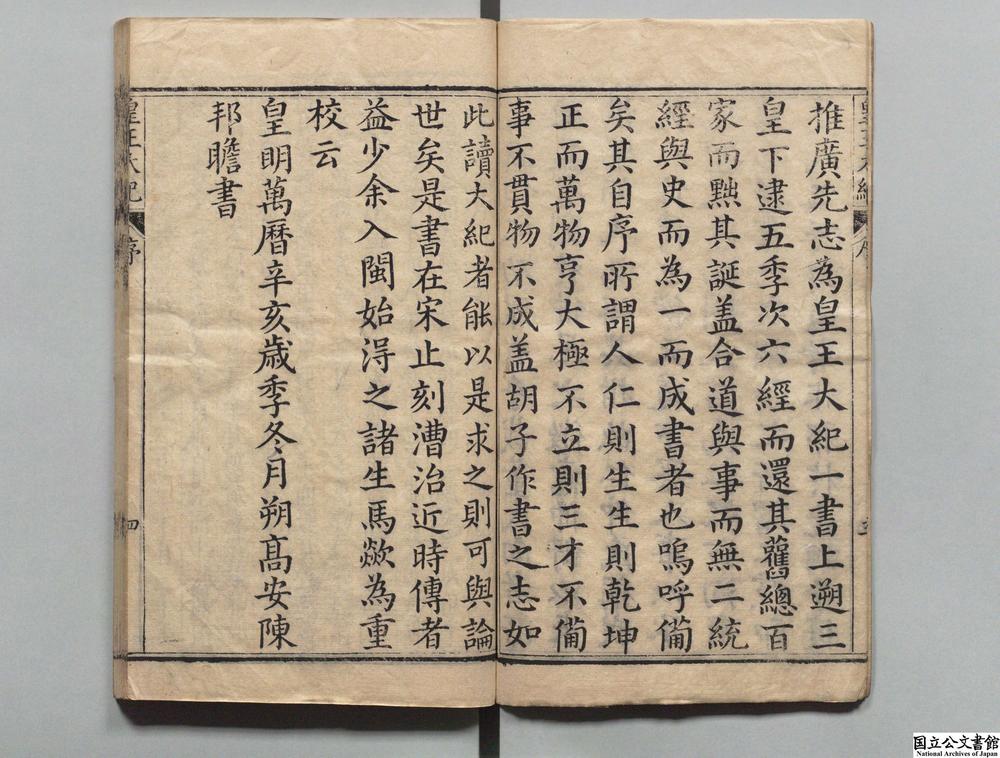 推廣先志為皇王大紀一書上遡三
皇下逮五季次六經而還其舊總百
家而黜其誕盖合道與事而無二統
經與史而為一而成書者也嗚呼備
矣其自序所謂人仁則生生則乾坤
正而萬物亨大極不立則三才不備
事不貫物不成盖胡子作書之志如
此讀大紀者能以是求之則可與論
世矣是書在宋止刻漕治近時傳者
益少余入閩始淂之諸生馬歘為重
校云
皇明萬曆辛亥歲季冬月朔髙安陳
邦瞻書
皇王大紀
序
四
国立公文書館
National Archives of Japan